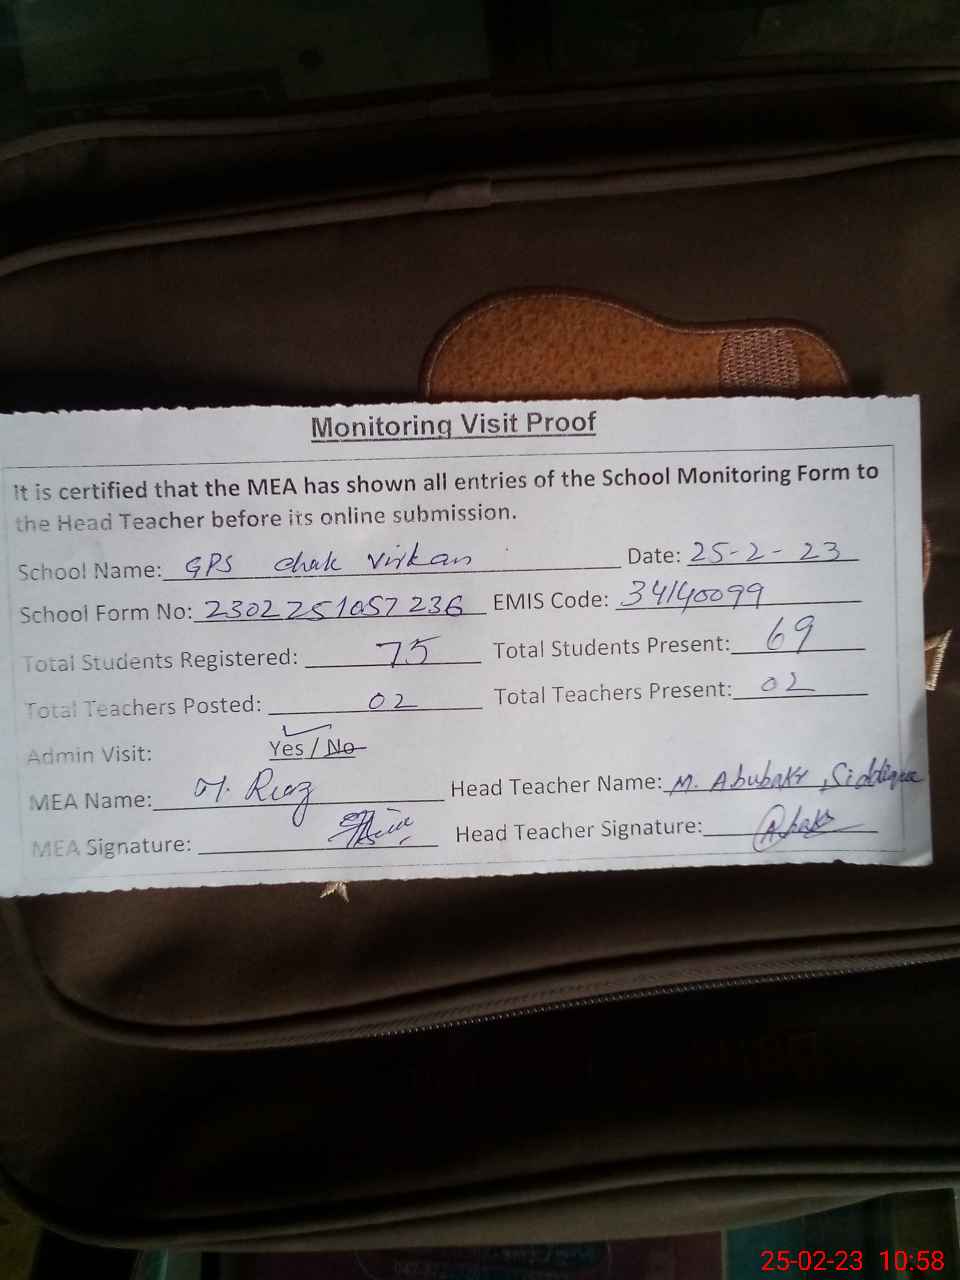 Monitoring Visit Proof
It is certified that the MEA has shown all entries of the School Monitoring Form to
the Head Teacher before its online submission.
School Name: GPS chak virkan Date: 25-2-23
School Form No: 2302251057236 EMIS Code: 34140099
Total Students Registered: 75 Total Students Present: 69
Total Teachers Posted: 02 Total Teachers Present: 02
Admin Visit: Yes / No
MEA Name: M. Riaz Head Teacher Name: M. Abubakr, Siddique
MEA Signature: Head Teacher Signature:
25-02-23 10:58